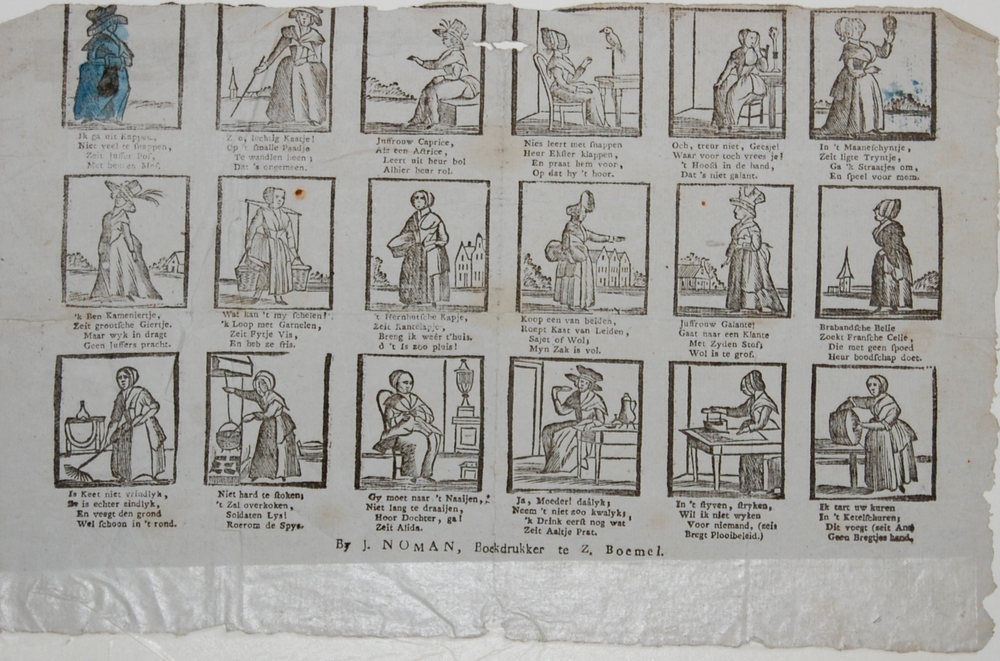 Ik ga uit
Niet veel te snappen,
Zeit Juffer
Met
Z o, lochtig Kaatje!
Op 't smalle Paadje
Te wandlen heen;
Dat 's ongemeen.
Juffrouw Caprice,
Als een Actrice,
Leert uit heur bol
Alhier heur rol.
Nies leert met snappen
Heur Ekster klappen,
En praat hem voor,
Op dat hy 't hoor.
Och, treur niet, Geesje!
Waar voor toch vrees je!
't Hoofd in de hand,
Dat 's niet galant.
In 't Maaneschyntje,
Zeit ligte Tryntje,
Ga 'k Straatjes om,
En speel voor mom.
'k Ben Kameniertje,
Zeit grootsche Giertje.
Maar wyk in dragt
Geen Juffers pracht.
Wat kan 't my schelen?
'k Loop met Garnelen,
Zeit Fytje Vis,
En heb ze fris.
't Hernhutsche Kapje,
Zeit
Breng ik weêr t'huis.
ô 't Is zoo pluis!
Koop een van beiden,
Roept Kaat van Leiden,
Sajet of Wol;
Myn Zak is vol.
Juffrouw Galante;
Gaat naar een Klante
Met Zyden Stof;
Wol is te grof.
Brabandsche Belle
Zoekt Fransche Celle,
Die met geen spoed
Heur boodschap doet.
Is Keet niet vrindlyk,
Ze is echter zindlyk,
En veegt den grond
Wel schoon in 't rond.
Niet hard te stoken;
't Zal overkoken,
Soldaten Lys!
Roerom de Spys.
Gy moet naar 't Naaijen,
Niet lang te draaijen,
Hoor Dochter, ga!
Zeit Alida.
Ja, Moeder! dadlyk;
Neem 't niet zoo kwalyk;
'k Drink eerst nog wat
Zeit Aaltje Prat.
In 't styven, stryken,
Wil ik niet wyken
Voor niemand, (zeis
Bregt Plooibeleid.)
Ik tart uw kuren
In 't Ketelschuren;
Dit voegt (zeit Ant)
Geen Bregtjes hand,
By J. NOMAN, Boekdrukker te Z. Boemel.